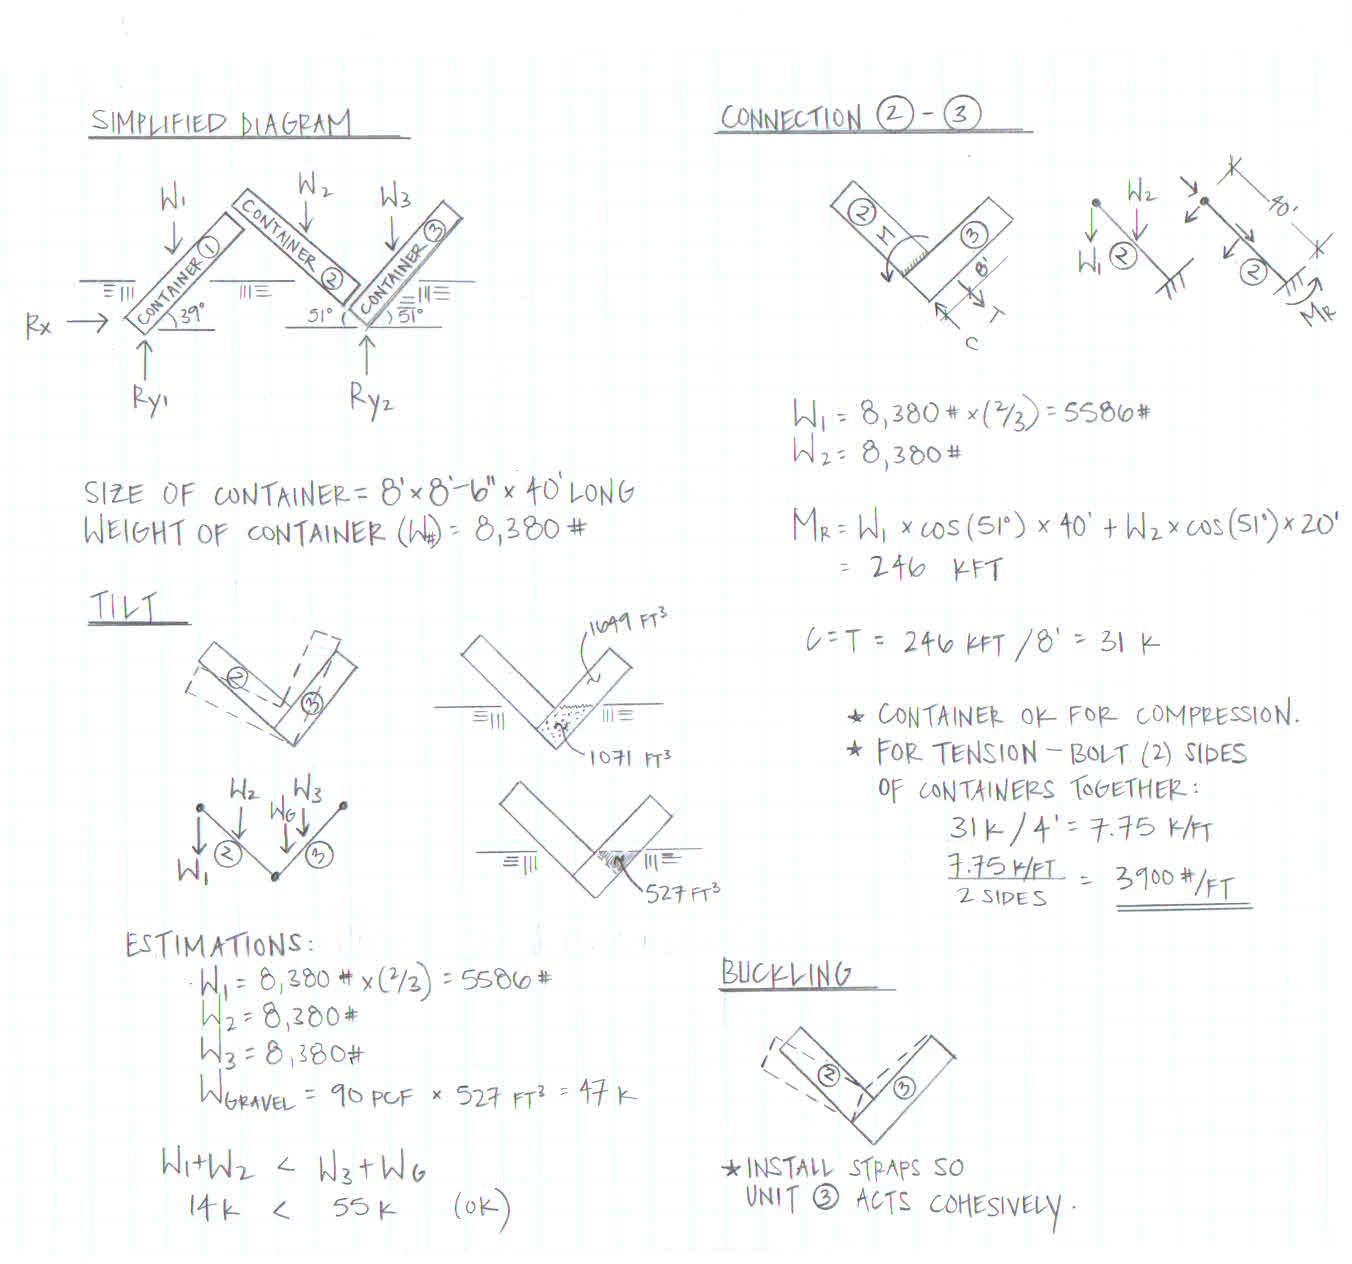 SIMPLIFIED DIAGRAM
W1
W2
W3
CONTAINER ①
CONTAINER ②
CONTAINER ③
39°
51°
51°
Rx
Ry1
Ry2
SIZE OF CONTAINER = 8' × 8'-6" × 40' LONG
WEIGHT OF CONTAINER (W#) = 8,380 #
TILT
②
③
1649 FT³
1071 FT³
W2
W3
WG
W1
②
③
527 FT³
ESTIMATIONS:
W1 = 8,380 # × (2/3) = 5586 #
W2 = 8,380 #
W3 = 8,380 #
WGRAVEL = 90 PCF × 527 FT³ = 47 K
W1+W2 < W3+WG
14 K < 55 K (OK)
CONNECTION ② - ③
②
③
8'
T
C
W2
W1
②
40'
②
MR
W1 = 8,380 # × (2/3) = 5586 #
W2 = 8,380 #
MR = W1 × cos(51°) × 40' + W2 × cos(51°) × 20'
= 246 KFT
C = T = 246 KFT / 8' = 31 K
* CONTAINER OK FOR COMPRESSION.
* FOR TENSION - BOLT (2) SIDES
OF CONTAINERS TOGETHER:
31 K / 4' = 7.75 K/FT
7.75 K/FT
2 SIDES
= 3900 #/FT
BUCKLING
②
③
* INSTALL STRAPS SO
UNIT ③ ACTS COHESIVELY.